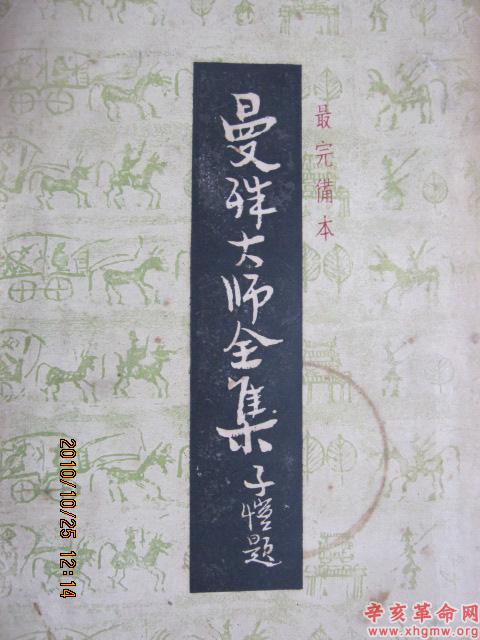 最完備本
曼殊大师全集
子愷題
2010/10/25 12:14
辛亥革命网
www.xhgmw.org